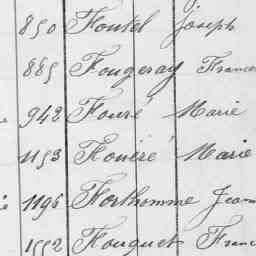 850 Foutel Joseph
885 Fougeray France
942 Fouré Marie
1153 Fouéré Marie
1196 Forthomme Jean
1552 Fouquet Franc